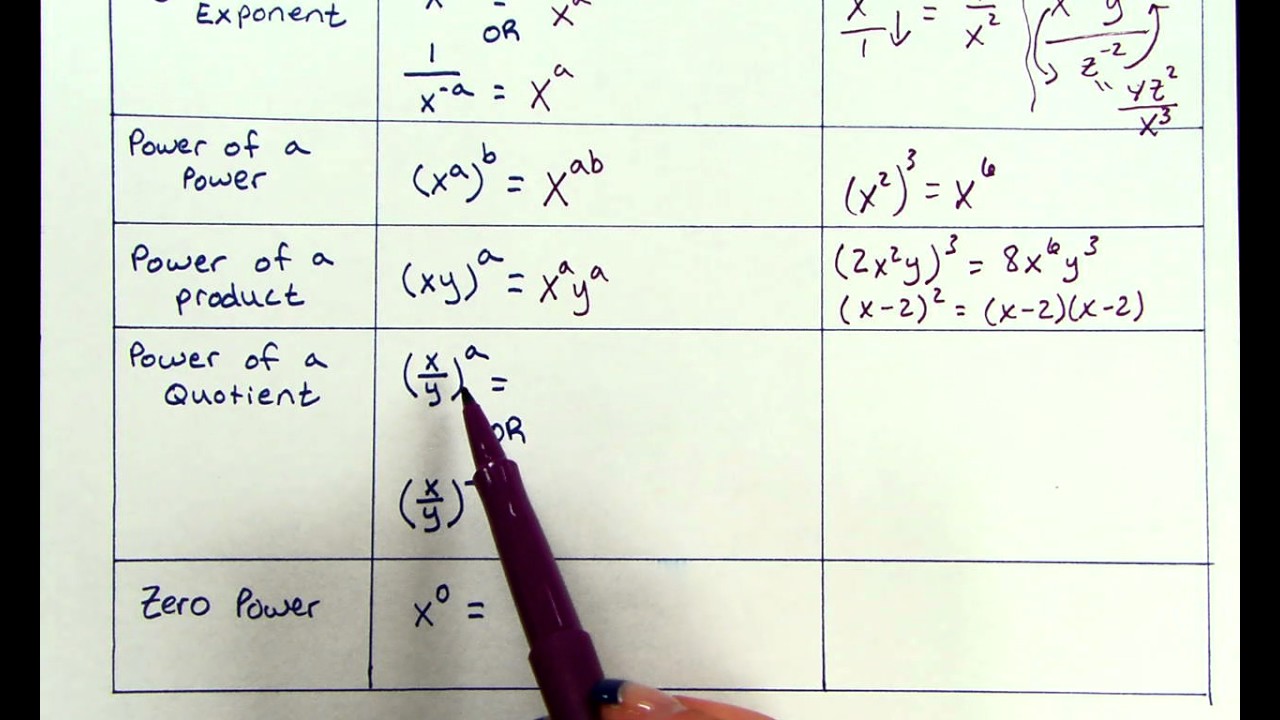 Exponent
OR
1/x⁻ᵃ = xᵃ
x/1 ↓ = 1/x²
z⁻²
yz²/x³
Power of a
Power
(xᵃ)ᵇ = xᵃᵇ
(x²)³ = x⁶
Power of a
product
(xy)ᵃ = xᵃyᵃ
(2x²y)³ = 8x⁶y³
(x-2)² = (x-2)(x-2)
Power of a
Quotient
(x/y)ᵃ =
OR
(x/y)⁻
Zero Power
x⁰ =